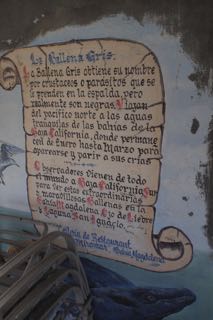 La Ballena Gris.
La Ballena Gris obtiene su nombre
por crustaceos o parasitos que se
le prenden en la espalda, pero
realmente son negras. Viajan
del pacifico norte a las aguas
tranquilas de las bahias de la
Baja California, donde permane
cen de Enero hasta Marzo para
aparearse y parir a sus crias
Observadores vienen de todo
el mundo a Baja California Sur
para ver estas extraordinarias
y maravillosas Ballenas en la
Bahia Magdalena, Ojo de Liebre
y Laguna San Ignacio.
Cortesia de Restaurant
Miramar Bahia Magdalena